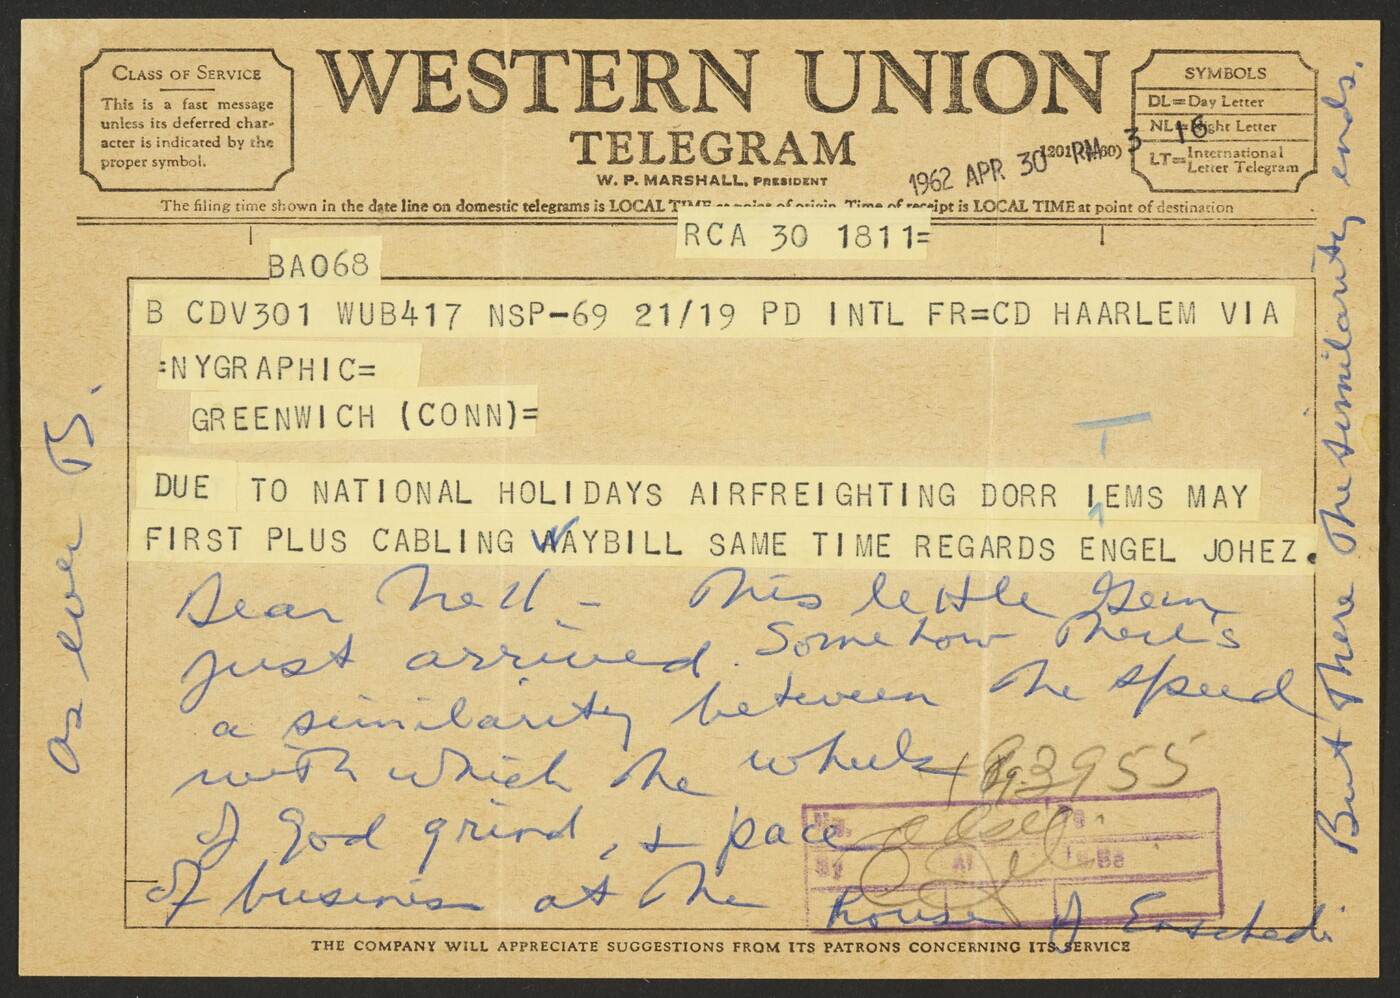 CLASS OF SERVICE
This is a fast message
unless its deferred char-
acter is indicated by the
proper symbol.
WESTERN UNION
TELEGRAM
W. P. MARSHALL, PRESIDENT
1962 APR 30 PM 3 16
1201 (4-60)
SYMBOLS
DL=Day Letter
NL=Night Letter
LT=International
Letter Telegram
The filing time shown in the date line on domestic telegrams is LOCAL TIME at point of origin. Time of receipt is LOCAL TIME at point of destination
RCA 30 1811=
BA068
B CDV301 WUB417 NSP-69 21/19 PD INTL FR=CD HAARLEM VIA
=NYGRAPHIC=
GREENWICH (CONN)=
T
DUE TO NATIONAL HOLIDAYS AIRFREIGHTING DORR IEMS MAY
FIRST PLUS CABLING WAYBILL SAME TIME REGARDS ENGEL JOHEZ.
Dear Nell - This little Gem
just arrived. Somehow There's
a similarity between the speed
with which the wheels
of God grind, & pace
of business at the house of Enschedé
But There The similarity ends.
as ever B.
3955
By
THE COMPANY WILL APPRECIATE SUGGESTIONS FROM ITS PATRONS CONCERNING ITS SERVICE